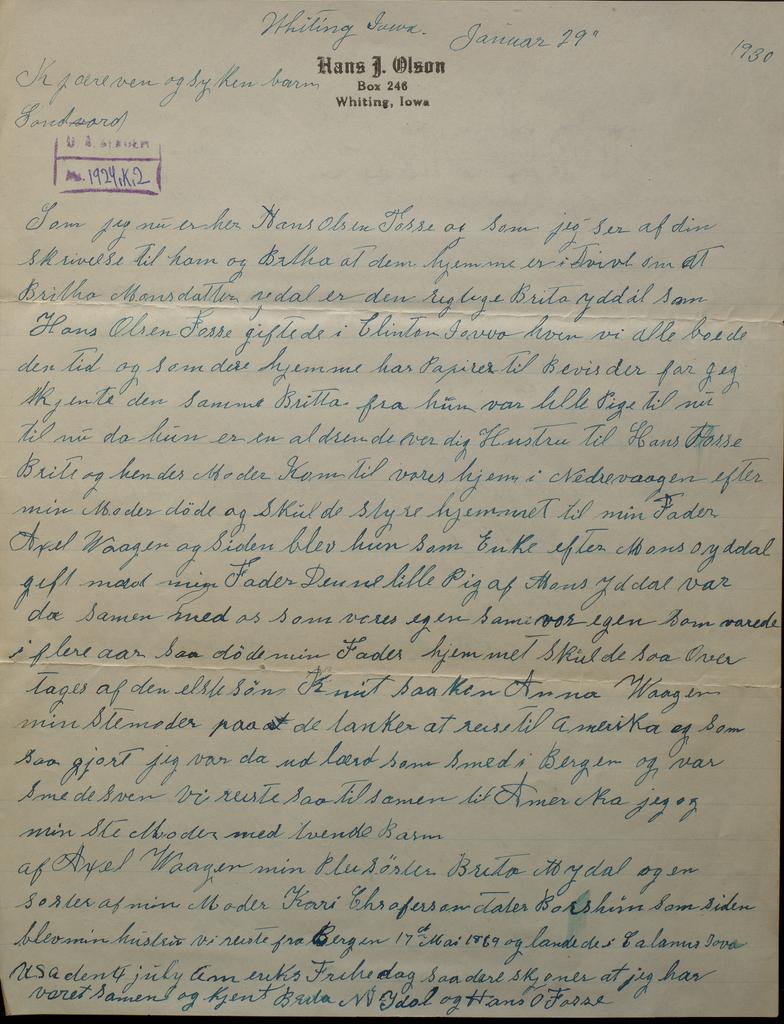 Whiting Iowa. Januar 29" 1930
Hans J. Olson
Box 246
Whiting, Iowa
Kjæreven og sysken barn
Sondvord
No. 1924.K.2
Som jeg nu er her Hans Olsen Fosse og som jeg ser af din
skrivelse til ham og Britha at dem hjemme er i Tvivl om at
Britha Monsdatter ydal er den regtige Brita yddal som
Hans Olsen Fosse giftede i Clinton Iovvo hvor vi alle boede
den tid og som dere hjemme har Papirer til Bevis der for jeg
Kjente den samme Britta fra hun var lille Pige til nu
til nu da hun er en aldrende verdig Hustru til Hans Fosse
Brite og hendes Moder Kom til vores hjem i Nedrevaagen efter
min Moder döde og skulde styre hjemmet til min Fader
Axel Waagen og siden blev hun som Enke efter Mons yddal
gift med min Fader Denne lille Pig af Mons yddal var
da samen med os som vores egen som vor egen Som varede
i flere aar saa döde min Fader hjemmet skulde saa Over
tages af den elste sön Knut saa Ken Anna Waagen
min Stemoder paa de tanker at reise til Amerika og som
saa gjort jeg var da udlærd som smed i Bergen og var
smedesven vi reiste saa til samen til Amerika jeg og
min Ste Moder med tvende Barn
af Axel Waagen min Pleisöster Brita M ydal og en
soster af min Moder Kari Chroferson dater Borshim som siden
blev min hustru vi reiste fra Bergen 17de Mai 1869 og landede i Calamus Iova
USA den 4 july Ameriks Frihedag saa dere skjöner at jeg har
varet samen og kjent Brita M Ydal og Hans O Fosse